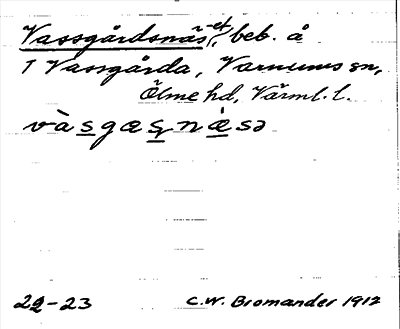 Vassgårdsnäs, -et, beb. å
1 Vassgårda, Varnums sn,
Ölme hd, Värml. l.
vàsgasnæ̀sə
22-23 C.W. Bromander 1912